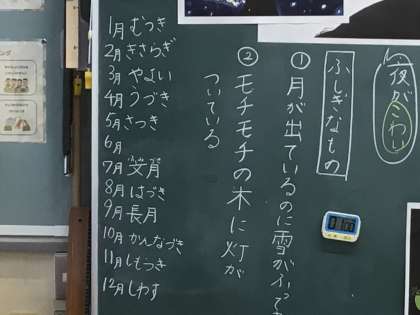 夜がこわい
ふしぎなもの
①月が出ているのに雪がふって
②モチモチの木に灯が
ついている
1月 むつき
2月 きさらぎ
3月 やよい
4月 うづき
5月 さつき
6月
7月
8月 はづき
9月 長月
10月 かんなづき
11月 しもつき
12月 しわす